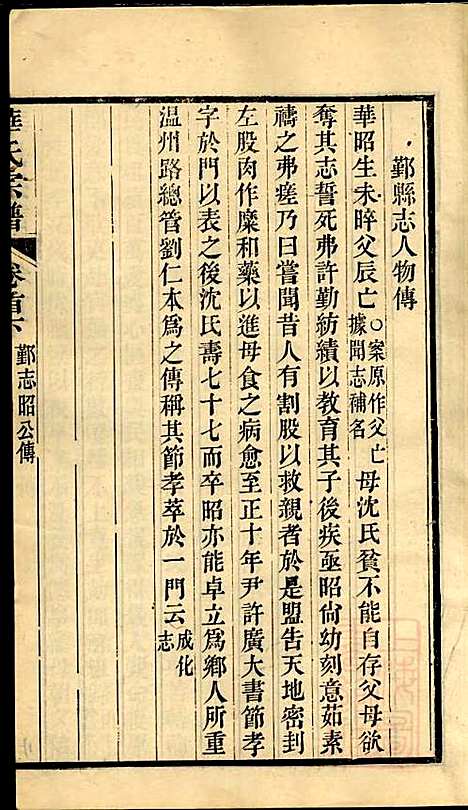 鄞縣志人物傳
華昭生未晬父辰亡○案原作父亡據聞志補名母沈氏貧不能自存父母欲
奪其志誓死弗許勤紡績以教育其子後疾亟昭尙幼刻意茹素
禱之弗瘥乃曰嘗聞昔人有割股以救親者於是盟告天地密刲
左股肉作糜和藥以進母食之病愈至正十年尹許廣大書節孝
字於門以表之後沈氏壽七十七而卒昭亦能卓立爲鄉人所重
温州路總管劉仁本爲之傳稱其節孝萃於一門云成化志
華氏宗譜
卷首下
鄞志昭公傳